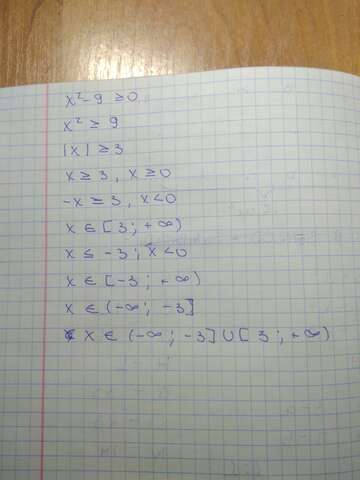 x²-9 ≥0
x² ≥ 9
|x| ≥ 3
x ≥ 3, x ≥ 0
-x ≥ 3, x<0
x ∈ [3; +∞)
x ≤ -3; x<0
x ∈ [-3; +∞)
x ∈ (-∞; -3]
x ∈ (-∞; -3]∪[3; +∞)